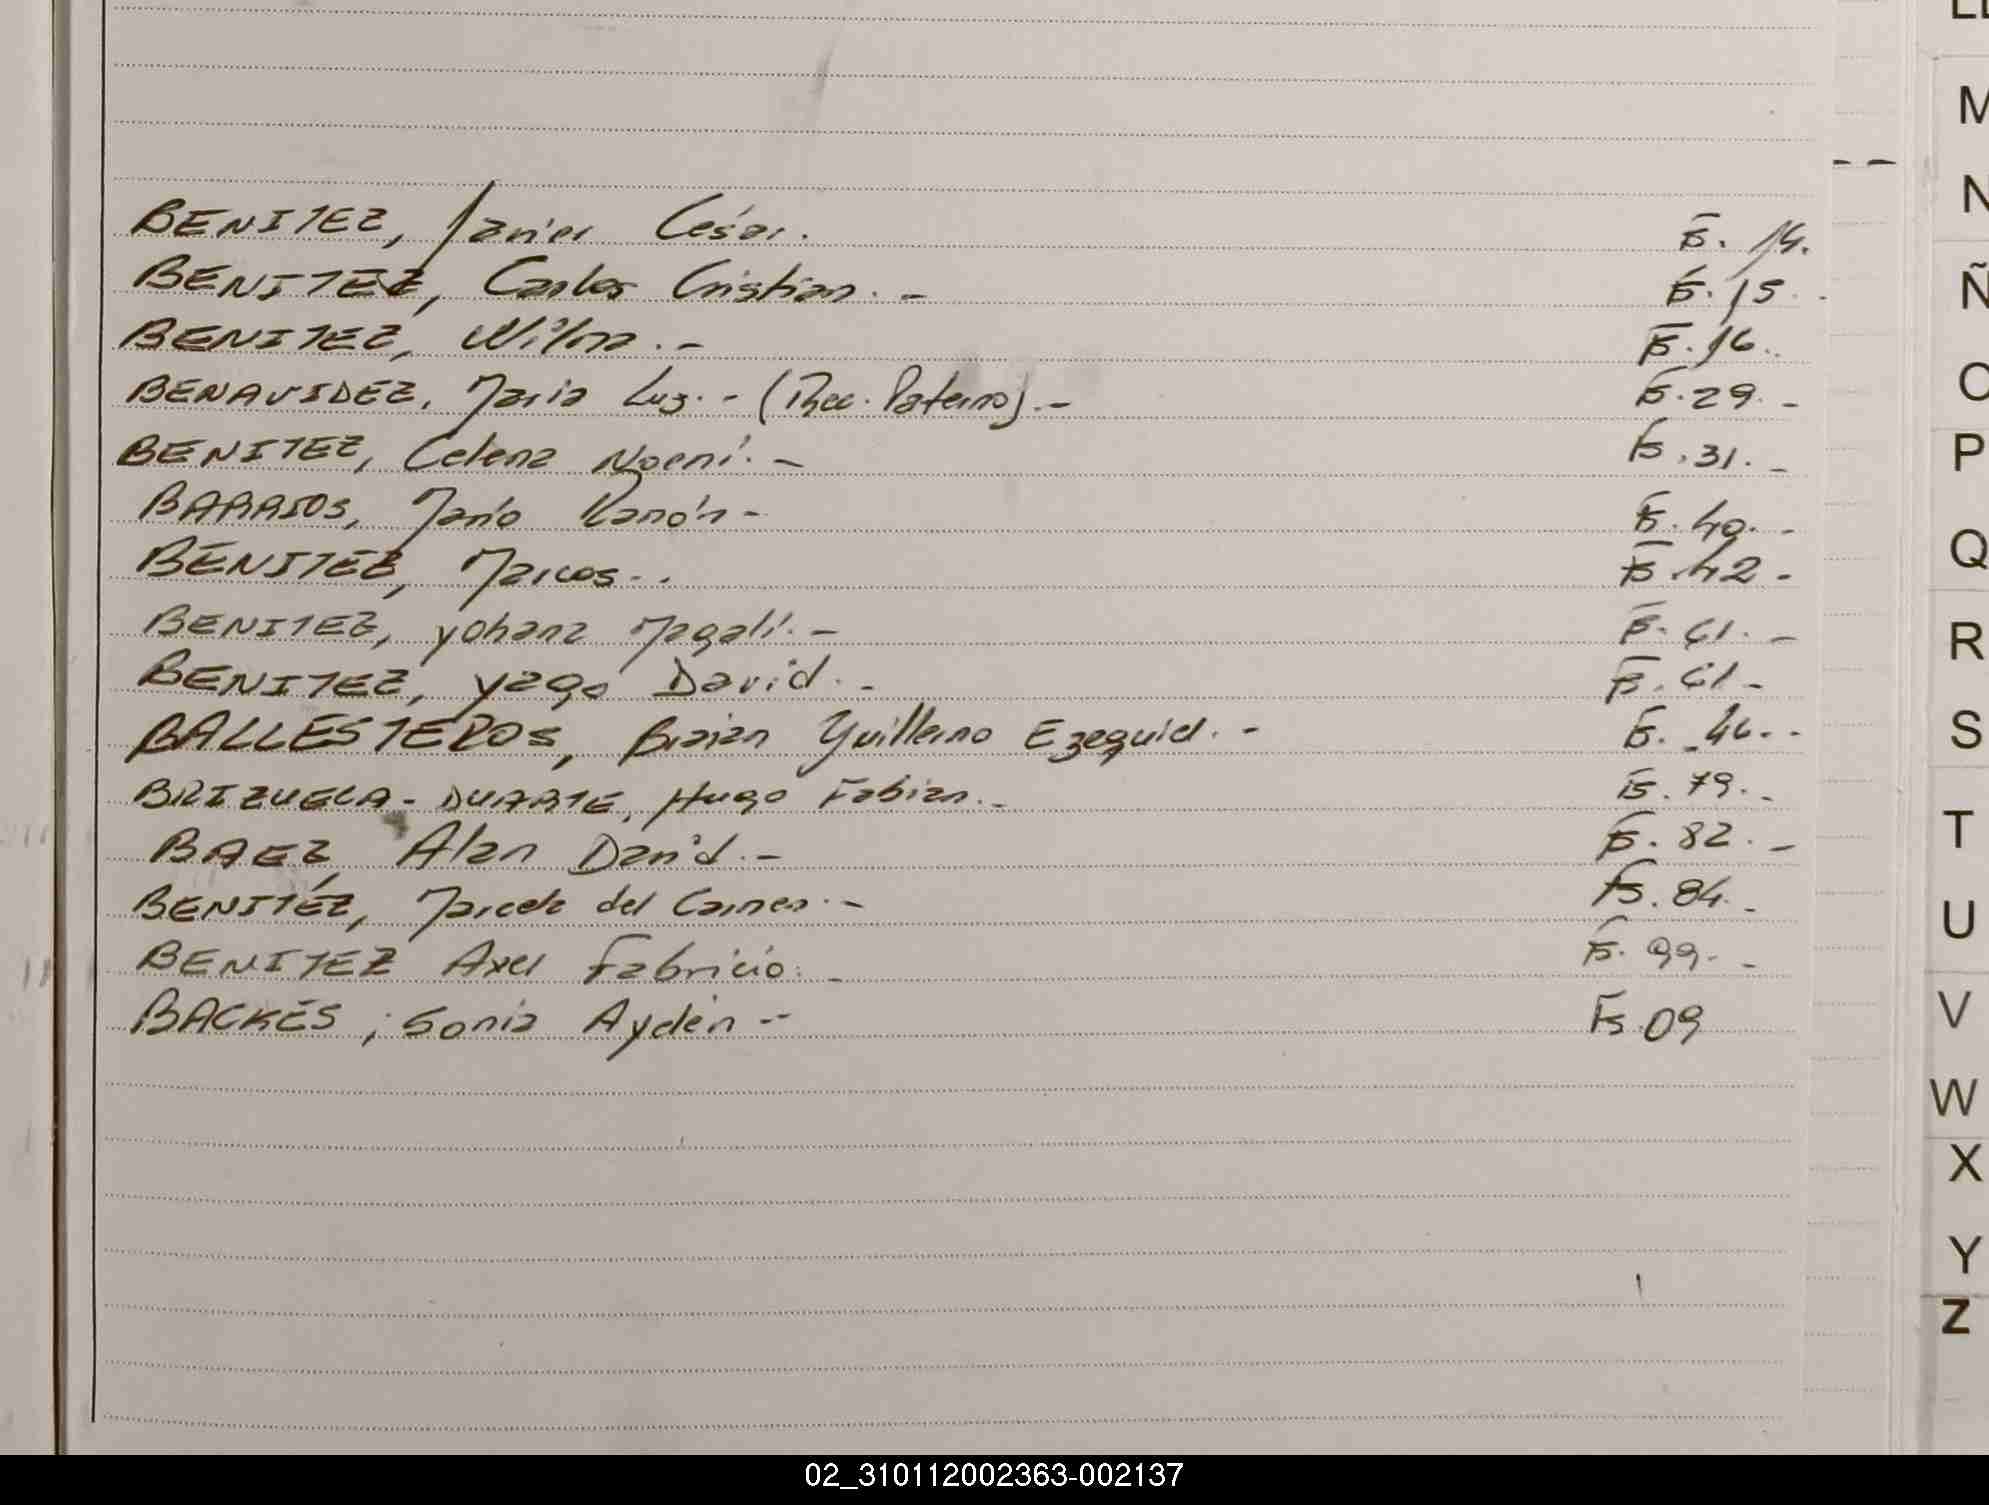 BENITEZ, Javier César. Fs. 14.
BENITEZ, Carlos Cristian. - Fs. 15.
BENITEZ, Wilma. - Fs. 16.
BENAVIDEZ, Maria Luz. - (Rec. Paterno). - Fs. 29. -
BENITEZ, Celena Noemí. - Fs. 31. -
BARRIOS, Mario Ramón - Fs. 40. -
BENITEZ, Marcos. . Fs. 42 -
BENITEZ, Yohana Magalí. - Fs. 61. -
BENITEZ, Yago David. - Fs. 61 -
BALLESTEROS, Brian Guillermo Ezequiel. - Fs.
BRIZUELA - DUARTE, Hugo Fabian. - Fs. 79. -
BAEZ, Alan David. - Fs. 82. -
BENITEZ, Marcela del Carmen. - Fs. 84. -
BENITEZ Axel Fabricio. - Fs. 99. -
BACKES, Sonia Ayden - - Fs. 09
M
N
Ñ
O
P
Q
R
S
T
U
V
W
X
Y
Z
02_310112002363-002137